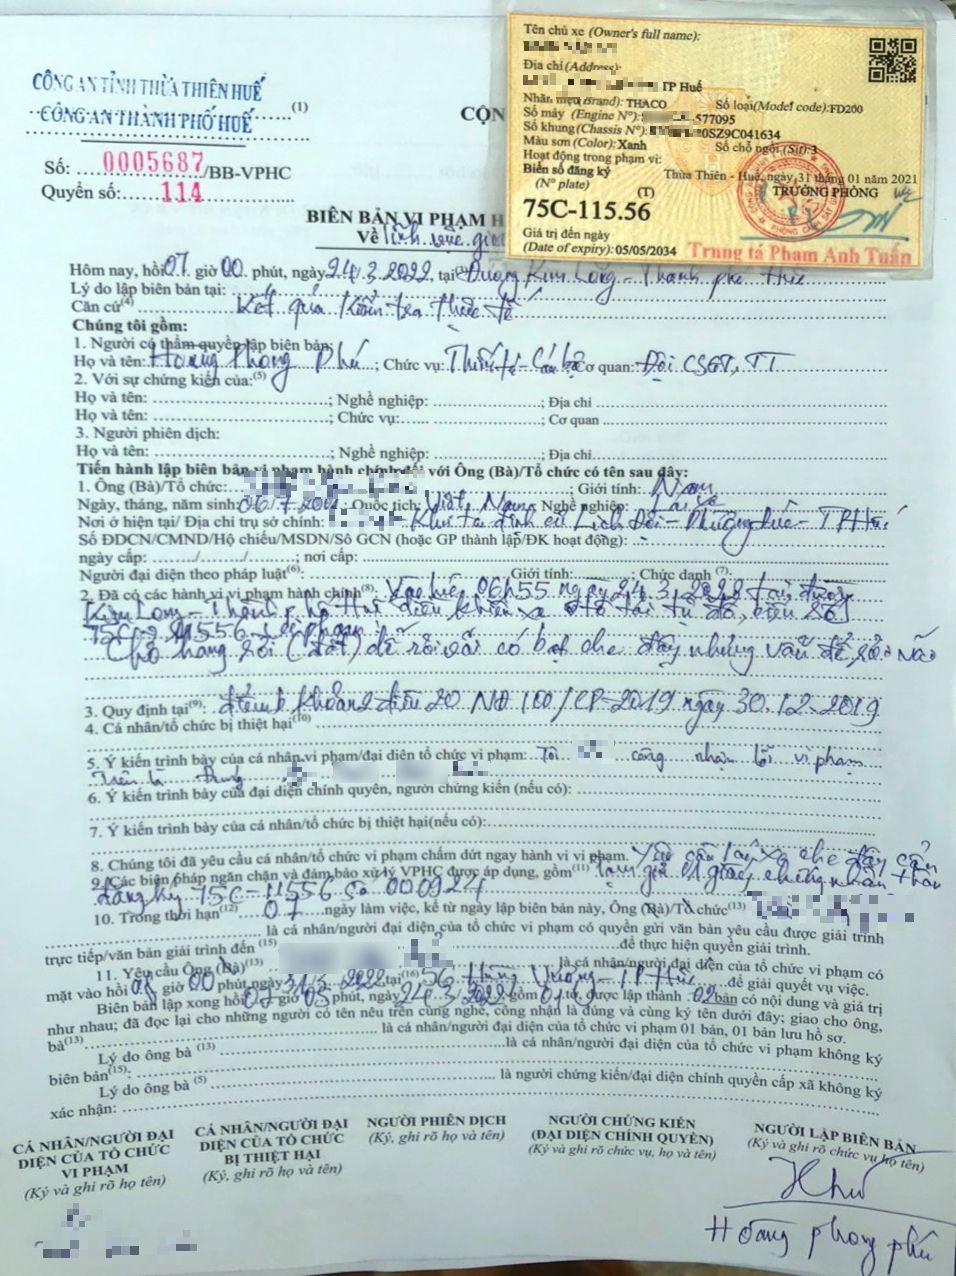 CÔNG AN TỈNH THỪA THIÊN HUẾ
CÔNG AN THÀNH PHỐ HUẾ (1)
CỘN
Số: 0005687/BB-VPHC
Quyển số: 114
Tên chủ xe (Owner's full name):
Địa chỉ (Address):
TP Huế
Nhãn hiệu Brand): THACO Số loại(Model code):FD200
Số máy (Engine N°): 577095
Số khung(Chassis N°): 0SZ9C041634
Màu sơn (Color): Xanh Số chỗ ngồi (Sit):3
Hoạt động trong phạm vi:
Biển số đăng ký Thừa Thiên - Huế, ngày 31 tháng 01 năm 2021
(N° plate) (T) TRƯỞNG PHÒNG
75C-115.56
Giá trị đến ngày
(Date of expiry): 05/05/2034
Trung tá Phạm Anh Tuấn
BIÊN BẢN VI PHẠM H
Về lĩnh vực giao
Hôm nay, hồi 07 giờ 00 phút, ngày 24.3.2022, tại Đường Kim Long - Thành phố Huế
Lý do lập biên bản tại:
Căn cứ(4) Kết quả kiểm tra thực tế
Chúng tôi gồm:
1. Người có thẩm quyền lập biên bản:
Họ và tên: Hoàng Phong Phú; Chức vụ: Thiếu tá - Cán bộ Cơ quan: Đội CSGT, TT
2. Với sự chứng kiến của:(5)
Họ và tên: ; Nghề nghiệp: ; Địa chỉ
Họ và tên: ; Chức vụ: ; Cơ quan
3. Người phiên dịch:
Họ và tên: ; Nghề nghiệp: ; Địa chỉ
Tiến hành lập biên bản vi phạm hành chính đối với Ông (Bà)/Tổ chức có tên sau đây:
1. Ông (Bà)/Tổ chức: ; Giới tính: Nam
Ngày, tháng, năm sinh: Quốc tịch: Việt Nam Nghề nghiệp: Lái xe
Nơi ở hiện tại/ Địa chỉ trụ sở chính: Khu tái định cư Lịch Đợi - Phường Đúc - TP Huế
Số ĐDCN/CMND/Hộ chiếu/MSDN/Số GCN (hoặc GP thành lập/ĐK hoạt động):
ngày cấp: ...../...../.....; nơi cấp:
Người đại diện theo pháp luật(6): Giới tính: ; Chức danh (7):
2. Đã có các hành vi vi phạm hành chính(8): Vào hồi 06h55 ngày 24.3.2022 tại đường
Kim Long - Thành phố Huế điều khiển xe ô tô tải tự đổ, biển số
75C-11556
Chở hàng rời (đất) để rơi vãi có bạt che đậy nhưng vẫn để
3. Quy định tại(9): điều 20 NĐ 100/CP-2019 ngày 30.12.2019
4. Cá nhân/tổ chức bị thiệt hại(10)
5. Ý kiến trình bày của cá nhân vi phạm/đại diện tổ chức vi phạm: Tôi công nhận lỗi vi phạm
Trên là Đúng
6. Ý kiến trình bày của đại diện chính quyền, người chứng kiến (nếu có):
7. Ý kiến trình bày của cá nhân/tổ chức bị thiệt hại(nếu có):
8. Chúng tôi đã yêu cầu cá nhân/tổ chức vi phạm chấm dứt ngay hành vi vi phạm. Yêu cầu lái xe che đậy cẩn thận
9. Các biện pháp ngăn chặn và đảm bảo xử lý VPHC được áp dụng, gồm(11) tạm giữ 01 giấy chứng nhận
đăng ký 75C-11556 Số 000924
10. Trong thời hạn(12) 07 ngày làm việc, kể từ ngày lập biên bản này, Ông (Bà)/Tổ chức(13)
là cá nhân/người đại diện của tổ chức vi phạm có quyền gửi văn bản yêu cầu được giải trình
trực tiếp/văn bản giải trình đến (15) để thực hiện quyền giải trình.
11. Yêu cầu Ông (Bà)(13) là cá nhân/người đại diện của tổ chức vi phạm có
mặt vào hồi 08 giờ 00 phút, ngày 31.3.2022 tại(16) 56 Hùng Vương - TP Huế để giải quyết vụ việc.
Biên bản lập xong hồi 07 giờ 05 phút, ngày 24/3/2022, gồm 01 tờ, được lập thành 02 bản có nội dung và giá trị
như nhau; đã đọc lại cho những người có tên nêu trên cùng nghe, công nhận là đúng và cùng ký tên dưới đây; giao cho ông,
bà(13) là cá nhân/người đại diện của tổ chức vi phạm 01 bản, 01 bản lưu hồ sơ.
Lý do ông bà (13) là cá nhân/người đại diện của tổ chức vi phạm không ký
biên bản(15):
Lý do ông bà (5) là người chứng kiến/đại diện chính quyền cấp xã không ký
xác nhận:
CÁ NHÂN/NGƯỜI ĐẠI DIỆN CỦA TỔ CHỨC VI PHẠM
(Ký và ghi rõ họ tên)
CÁ NHÂN/NGƯỜI ĐẠI DIỆN CỦA TỔ CHỨC BỊ THIỆT HẠI
(Ký, ghi rõ họ và tên)
NGƯỜI PHIÊN DỊCH
(Ký, ghi rõ họ và tên)
NGƯỜI CHỨNG KIẾN
(ĐẠI DIỆN CHÍNH QUYỀN)
(Ký và ghi rõ chức vụ, họ và tên)
NGƯỜI LẬP BIÊN BẢN
(Ký và ghi rõ chức vụ họ tên)
Hoàng phong phú